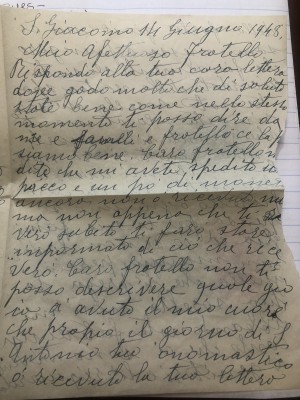 S. Giacomo 14 Giugno 1948.
Mio Afettuoso fratello
Rispondo alla tua cara lettera
dove godo molto che di salute
state bene come nello stesso
momento ti posso dire da
me e fratello e la pas
siamo bene. Caro fratello mi
dite che mi avete spedito un
pacco e un po di
ancora non o ricevuto nu
ma non appena che ti
verò subito ti farò stare
informato di ciò che rice
verò. Caro fratello non ti
posso descrivere quale gio
ia a avuto il mio cuore
che proprio il giorno di S.
Antonio tuo onomastico
o ricevuto la tua lettera